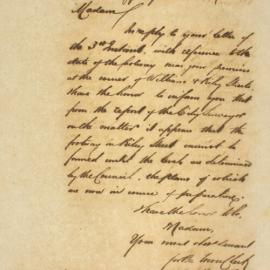 Madam,
In reply to your letter of
the 3rd Instant with reference to the
state of the footway near your premises
at the corner of William & Riley Streets
I have the honor to inform you that
from the report of the City Surveyor
on the matter it appears that the
footway in Riley Street cannot be
formed until the levels are determined
by the Council. the plans of which
are now in course of preparation.
I have the honor to be,
Madam,
Your most obdt Servant
for the Town Clerk